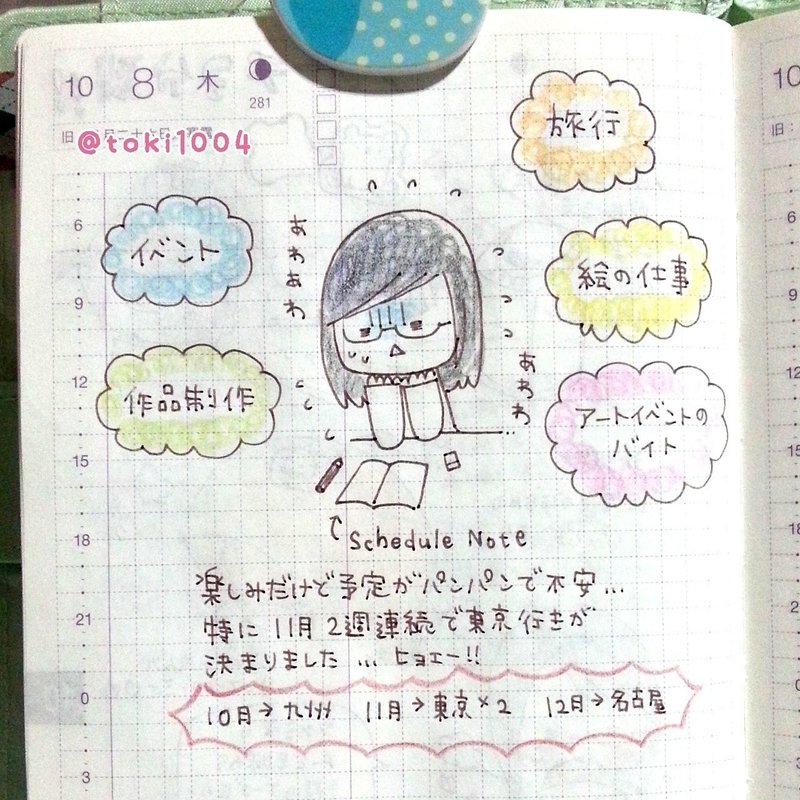 10 8 木
281
旧
@toki1004
旅行
イベント
絵の仕事
作品制作
アートイベントの
バイト
あわあわ
あわわ
6
9
12
15
18
21
0
3
Schedule Note
楽しみだけど予定がパンパンで不安…
特に11月2週連続で東京行きが
決まりました…ヒョエー!!
10月→九州 11月→東京×2 12月→名古屋
10
旧: